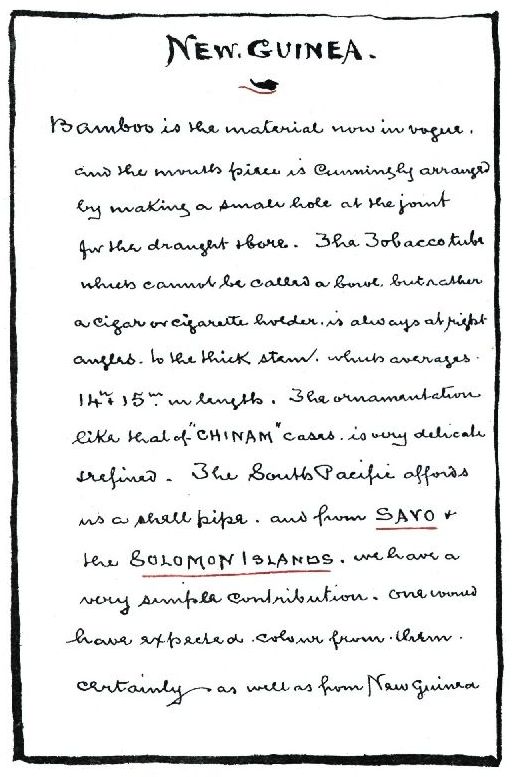 NEW. GUINEA.
Bamboo is the material now in vogue.
and the mouth piece is cunningly arranged
by making a small hole at the joint
for the draught & bore. The Tobacco tube
which cannot be called a bowl. but rather
a cigar or cigarette holder. is always at right
angles. to the thick stem. which averages.
14in & 15in in length. The ornamentation
like that of "CHINAM" cases. is very delicate
& refined. The South Pacific affords
us a shell pipe. and from SAVO &
the SOLOMON ISLANDS. we have a
very simple contribution. one would
have expected. colour from. them.
certainly as well as from New Guinea